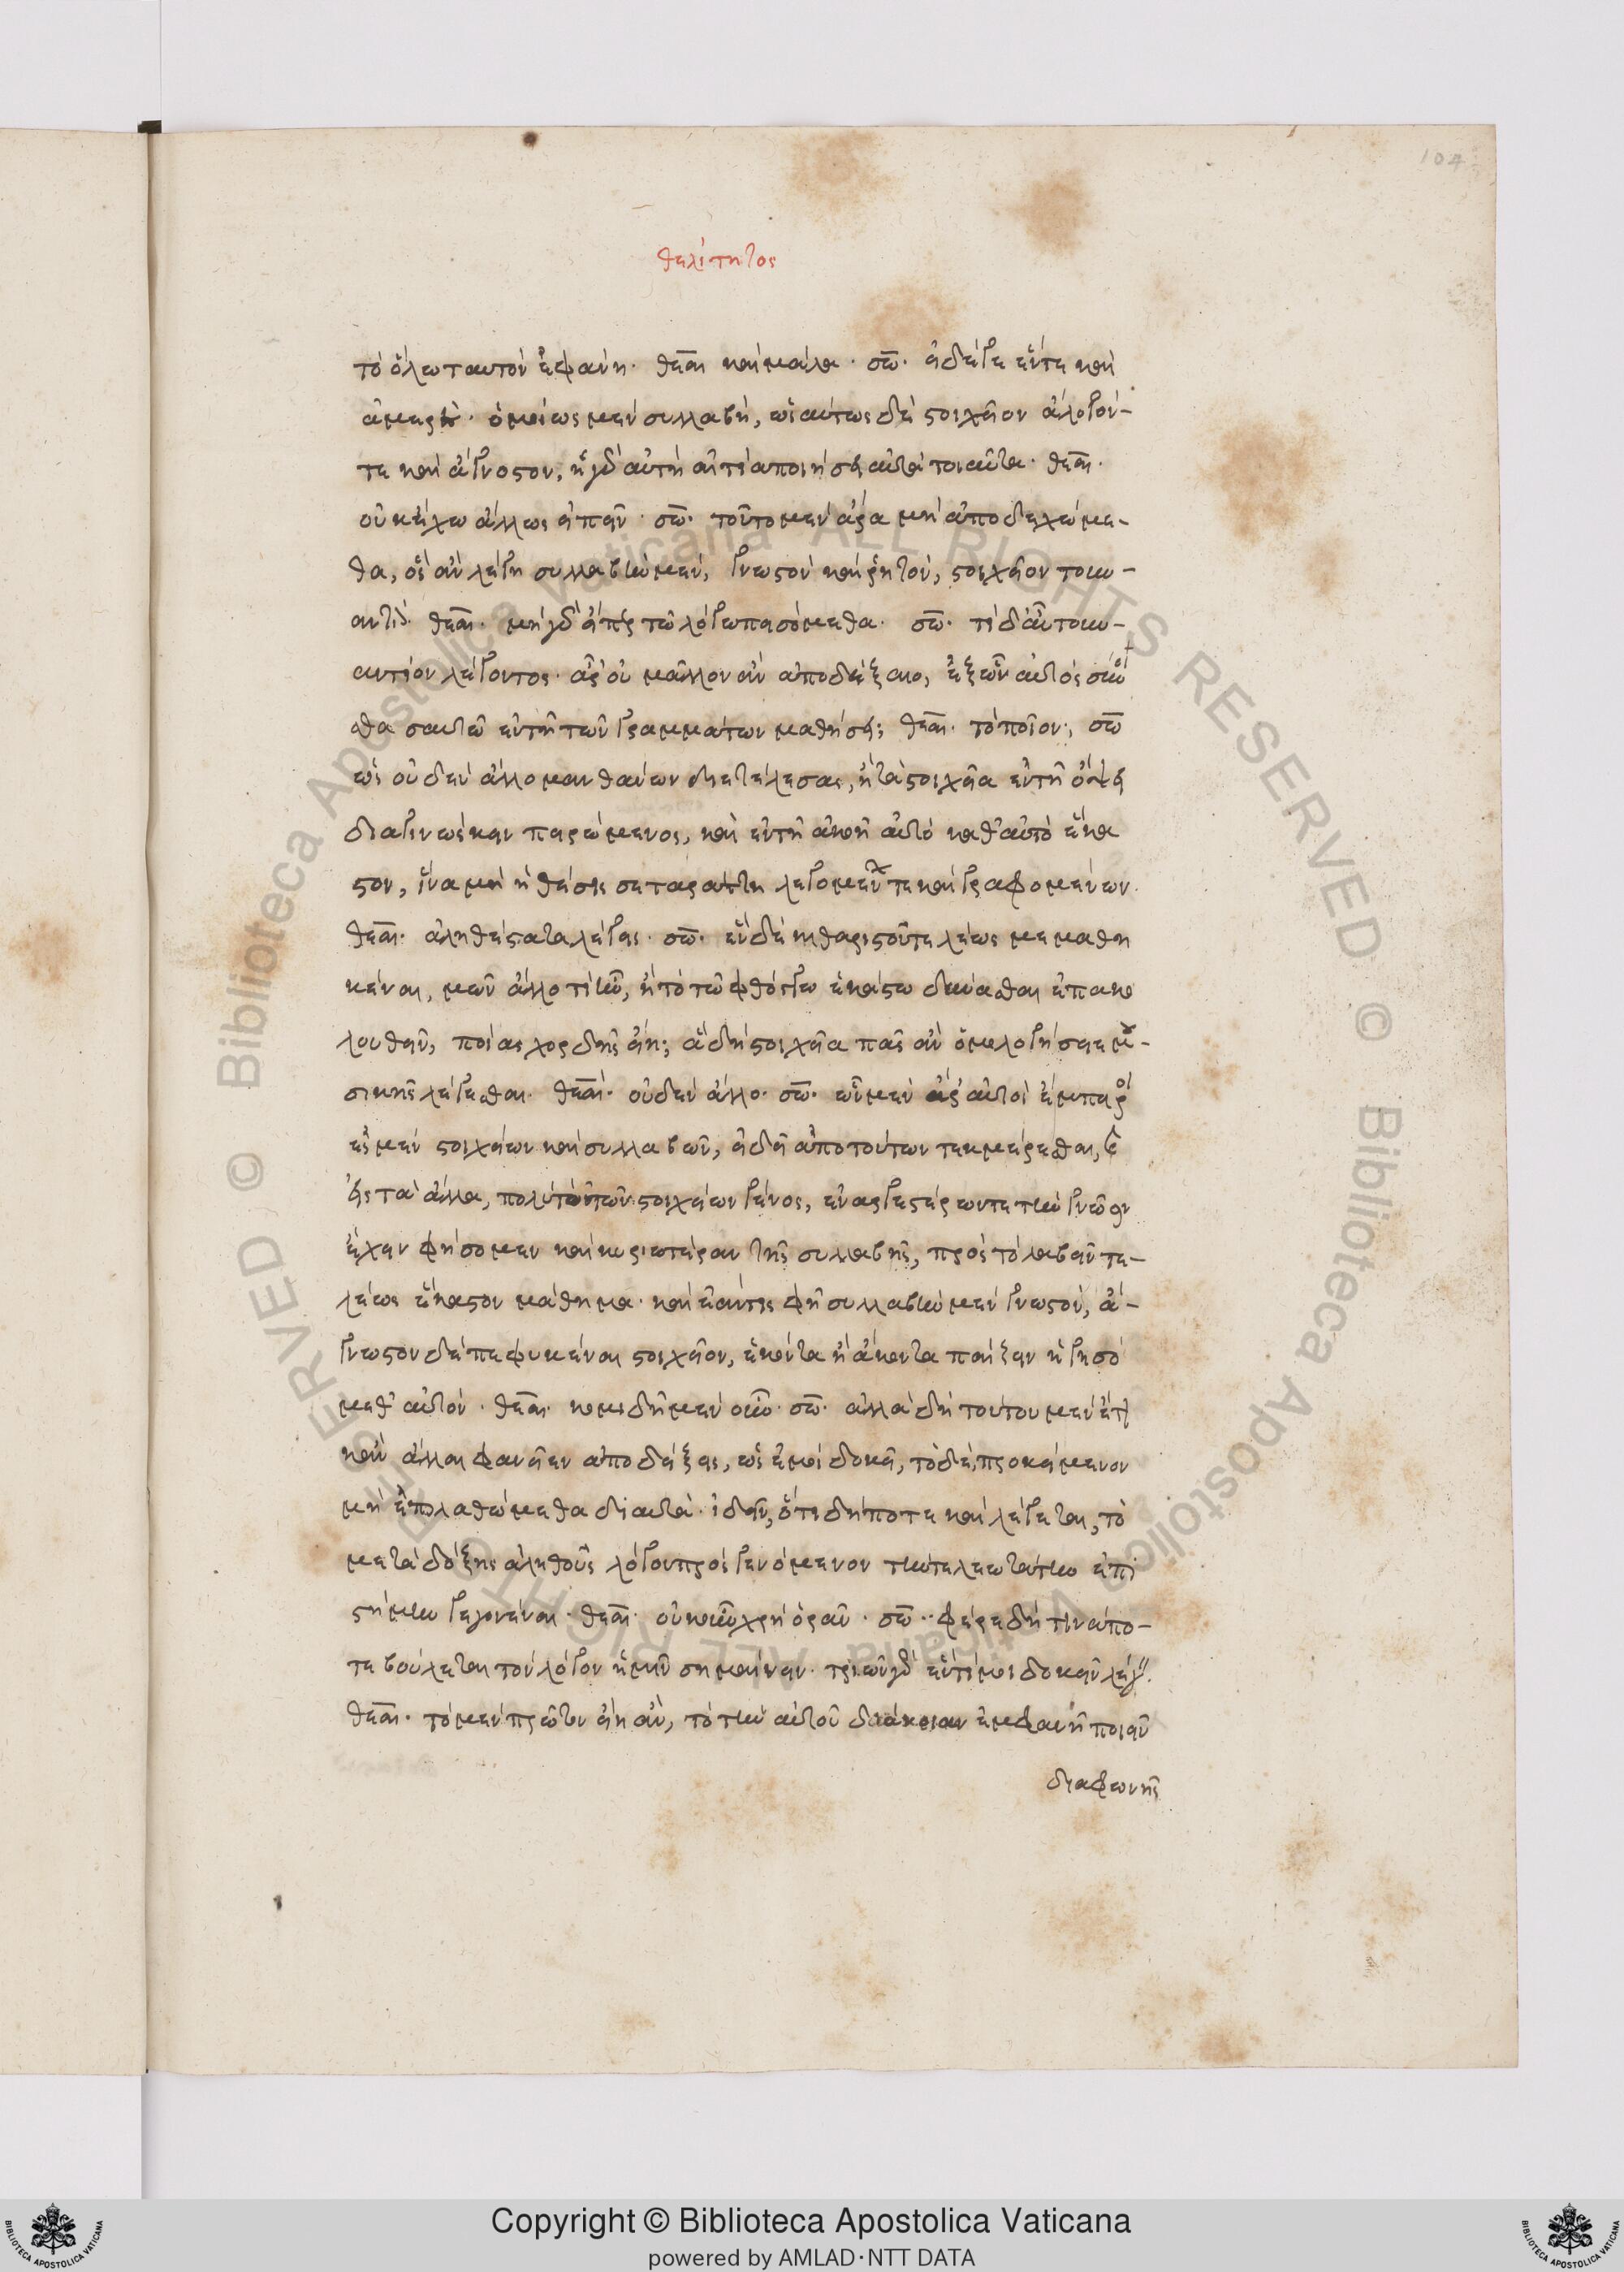 104
θεαίτητος
τὸ ὅλω ταυτὸν ἐφάνη. θεαι. καὶ μάλα. σω. εἰ δέ γε ἕν τε καὶ
ἀμερὲς. ὁμοίως μὲν συλλαβὴ, ὡσαύτως δὲ στοιχεῖον ἄλογόν-
τε καὶ ἄγνωστον, ἡ γὰρ αὐτὴ αἰτία ποιήσει αὐτὰ τοιαῦτα. θεαι.
οὐκ ἔχω ἄλλως εἰπεῖν. σω. τοῦτο μὲν ἄρα μὴ ἀποδεχώμε-
θα, ὃς ἂν λέγη συλλαβὴν μὲν, γνωστὸν καὶ ῥητὸν, στοιχεῖον τοὐν-
αντίον. θεαι. μὴ γὰρ εἴπερ τῶ λόγω πεσόμεθα. σω. τί δ' αὖ τοὐν-
αντίον λέγοντος. ἆρ' οὐ μᾶλλον ἂν ἀποδέξαιο, ἐξ ὧν αὐτὸς σύν
οισθα σαυτῶ ἐν τῆ τῶν γραμμάτων μαθήσει; θεαι. τὸ ποῖον; σω
ὡς οὐδὲν ἄλλο μανθάνων διετέλεσας, ἢ τὰ στοιχεῖα ἐν τῆ ὄψει
διαγινώσκειν πειρώμενος, καὶ ἐν τῆ ἀκοῆ αὐτὸ καθ' αὑτὸ ἕκα
στον, ἵνα μὴ ἡ θέσις σε ταράττη λεγομένων τε καὶ γραφομένων.
θεαι. ἀληθέστατα λέγεις. σω. ἐν δὲ κιθαριστοῦ τελέως μεμαθη
κέναι, μῶν ἄλλο τι ἦν, ἢ τὸ τῶ φθόγγω ἑκάστω δύνασθαι ἐπακο
λουθεῖν, ποίας χορδῆς εἴη; ἃ δὴ στοιχεῖα πᾶς ἂν ὁμολογήσειε μου-
σικῆς λέγεσθαι. θεαι. οὐδὲν ἄλλο. σω. ὧν μὲν ἄρ' αὐτοὶ ἔμπειροί
ἐσμεν στοιχείων καὶ συλλαβῶν, εἰ δεῖ ἀπὸ τούτων τεκμαίρεσθαι, καὶ
εἰς τὰ ἄλλα, πολὺ τὸ τῶν στοιχείων γένος, ἐναργεστέραν τε τὴν γνῶσιν
ἔχειν φήσομεν καὶ κυριωτέραν τῆς συλλαβῆς, πρὸς τὸ λαβεῖν τε-
λέως ἕκαστον μάθημα. καὶ ἐάν τις φῆ συλλαβὴν μὲν γνωστὸν, ἄ-
γνωστον δὲ πεφυκέναι στοιχεῖον, ἑκόντα ἢ ἄκοντα παίζειν ἡγησό
μεθ' αὐτόν. θεαι. κομιδῆ μὲν οὖν. σω. ἀλλὰ δὴ τούτου μὲν ἔτι
κἂν ἄλλαι φανεῖεν ἀποδείξεις, ὡς ἐμοὶ δοκεῖ, τὸ δὲ προκείμενον
μὴ ἐπιλαθώμεθα δι' αὐτὰ. ἰδεῖν, ὅτι δήποτε καὶ λέγεται, τὸ
μετὰ δόξης ἀληθοῦς λόγον προσγενόμενον τὴν τελεωτάτην ἐπι
στήμην γεγονέναι. θεαι. οὐκοῦν χρὴ ὁρᾶν. σω. φέρε δὴ τίνα πο-
τε βούλεται τὸν λόγον ἡμῖν σημαίνειν. τριῶν γὰρ ἕν τί μοι δοκεῖν λέγειν.
θεαι. τὸ μὲν πρῶτον εἴη ἂν, τὸ τὴν αὐτοῦ διάνοιαν ἐμφανῆ ποιεῖν
διὰ φωνῆς
Copyright © Biblioteca Apostolica Vaticana
powered by AMLAD·NTT DATA